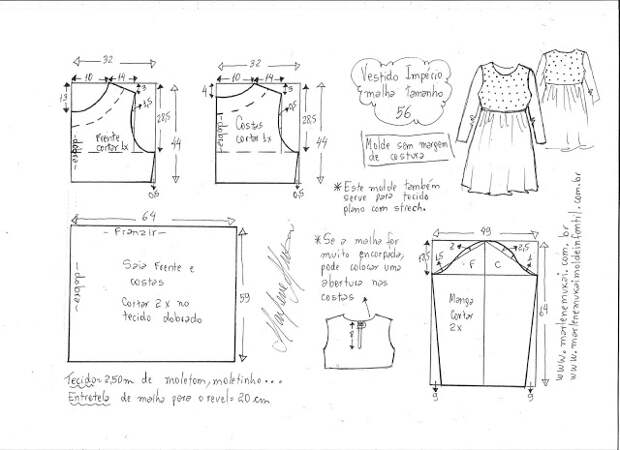 32
10
14
3
13
0,5
28,5
44
dobra
Frente
cortar 1x
0,5
32
10
14
3
4
0,5
28,5
44
dobra
Costas
cortar 1x
0,5
Vestido Império
malha Tamanho
56
Molde sem margem
de costura
*Este molde também
serve para tecido
plano com strech.
64
- Franzir -
dobra
Saia Frente e
costas
Cortar 2x no
tecido dobrado
59
Marlene Mukai
*Se a malha for
muito encorpada,
pode colocar uma
abertura nas
costas
49
2
2,5
1,5
F
C
Manga
Cortar
2x
64
9
9
www.marlenemukai.com.br
www.marlenemukaimoldeinfantil.com.br
Tecido= 2,50m de moletom, moletinho...
Entretela de malha para o revel= 20 cm